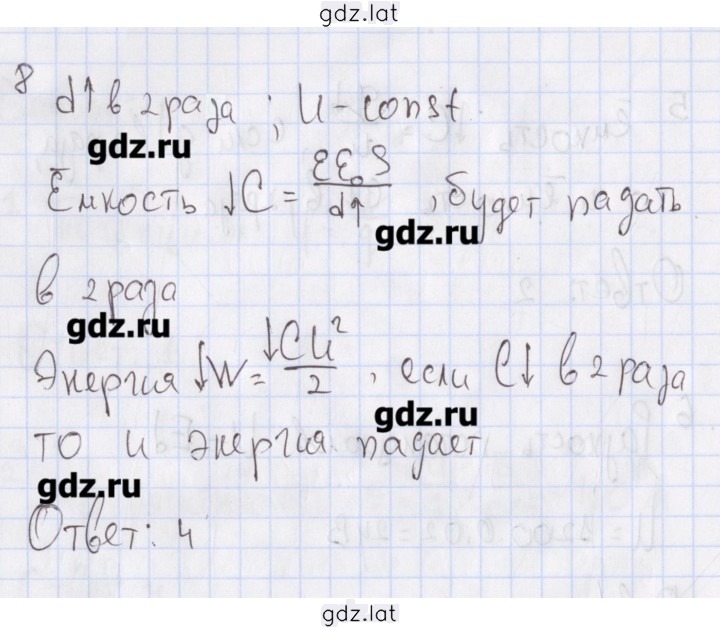 gdz.lat
8
d↑ в 2 раза ; U - const
gdz.ru
Ёмкость ↓C = εε₀S / d↑ , будет падать
gdz.ru
в 2 раза
gdz.ru
Энергия ↓W = ↓CU² / 2 , если C↓ в 2 раза
gdz.ru
то и энергия падает
gdz.ru
Ответ: 4
gdz.lat